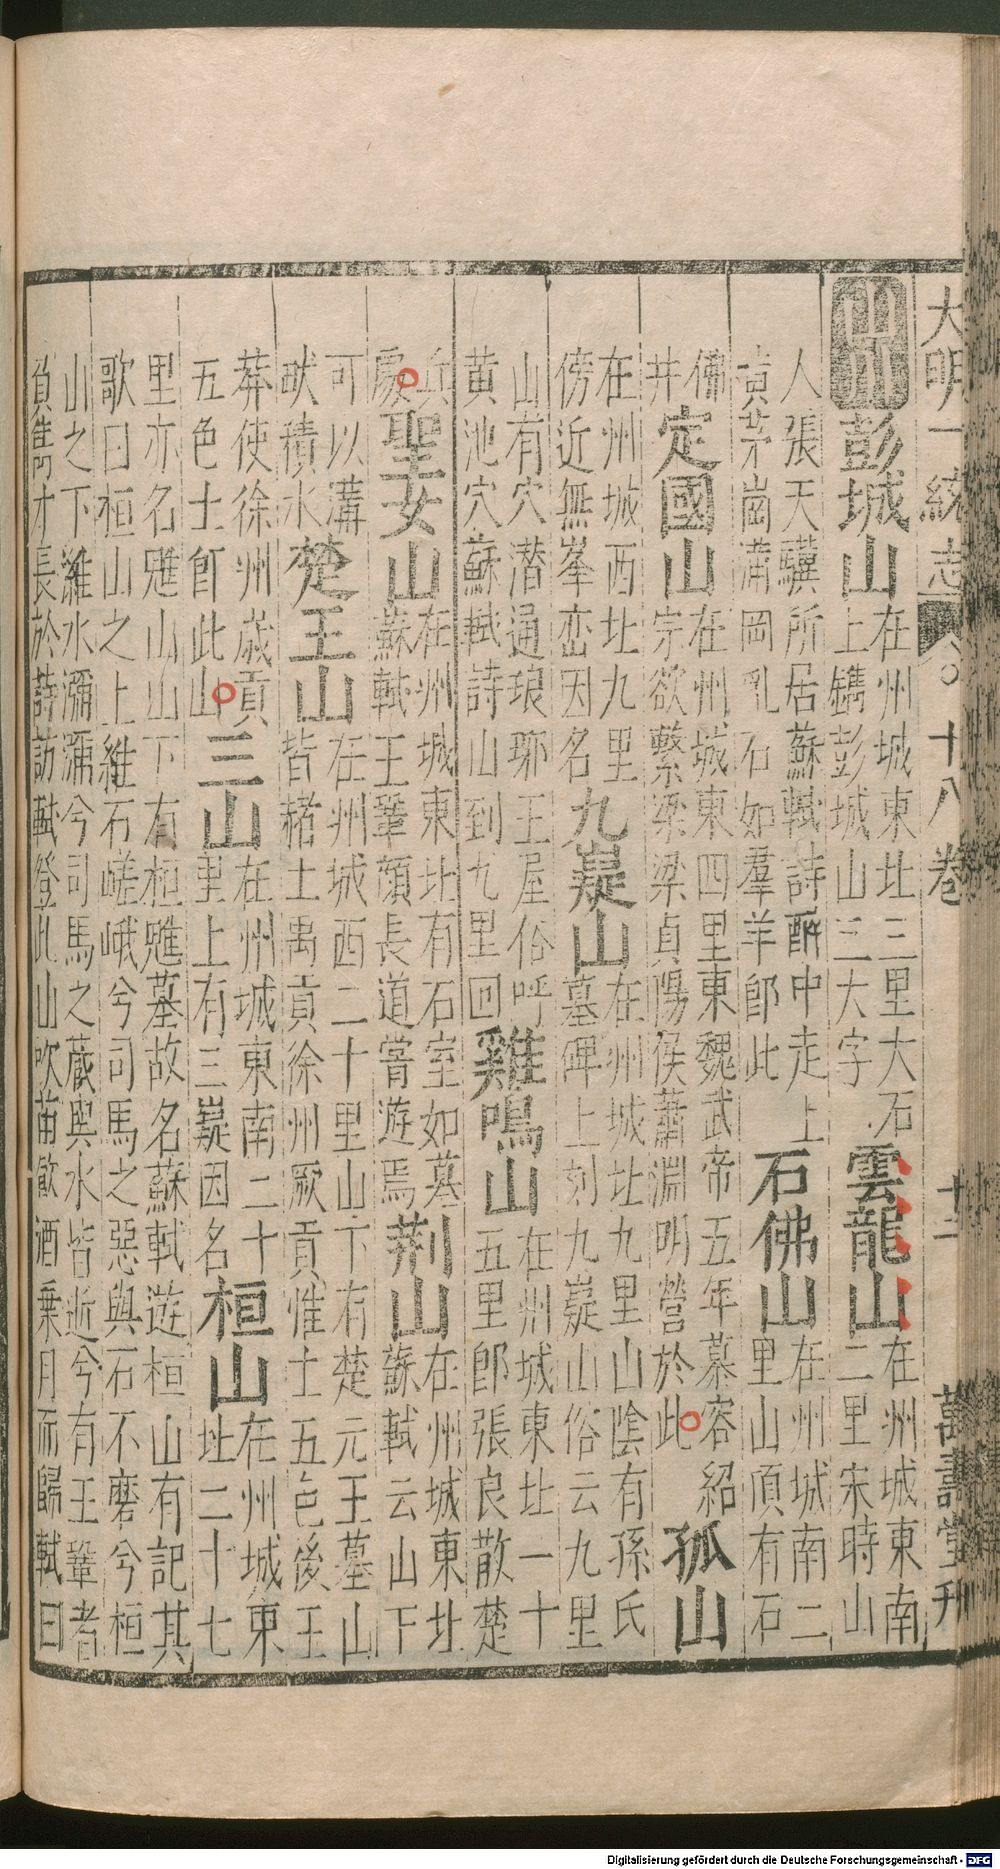 大明一統志 十八卷 十二 萬壽堂刋
山川 彭城山 在州城東北三里大石
上鐫彭城山三大字 雲龍山 在州城東南
二里宋時山
人張天驥所居蘇軾詩醉中走上
黃茅崗滿岡亂石如羣羊卽此 石佛山 在州城南二
里山頂有石
佛
井 定國山 在州城東四里東魏武帝五年慕容紹
宗欲繫梁梁貞陽侯蕭淵明營於此 孤山
在州城西北九里
傍近無峯巒因名 九嶷山 在州城北九里山陰有孫氏
墓碑上刻九嶷山俗云九里
山有穴潛通琅琊王屋俗呼
黃池穴蘇軾詩山到九里回 雞鳴山 在州城東北一十
五里卽張良散楚
兵
處 聖女山 在州城東北有石室如墓
蘇軾王鞏顏長道嘗遊焉 荆山 在州城東北
蘇軾云山下
可以溝
畎積水 楚王山 在州城西二十里山下有楚元王墓山
皆赭土禹貢徐州厥貢惟土五色後王
莽使徐州歲貢
五色土卽此山 三山 在州城東南二十
里上有三嶷因名 桓山 在州城東
北二十七
里亦名魋山山下有桓魋墓故名蘇軾遊桓山有記其
歌曰桓山之上維石嵯峨兮司馬之惡與石不磨兮桓
山之下濰水瀰瀰兮司馬之藏與水皆逝兮有王鞏者
負雋才長於詩訪軾登此山吹笛飲酒乗月而歸軾曰
Digitalisierung gefördert durch die Deutsche Forschungsgemeinschaft - DFG